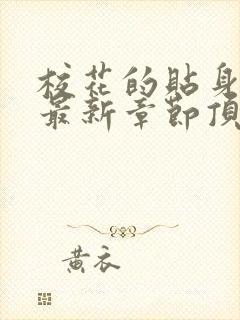 校花的貼身
最新章節頂
黃衣